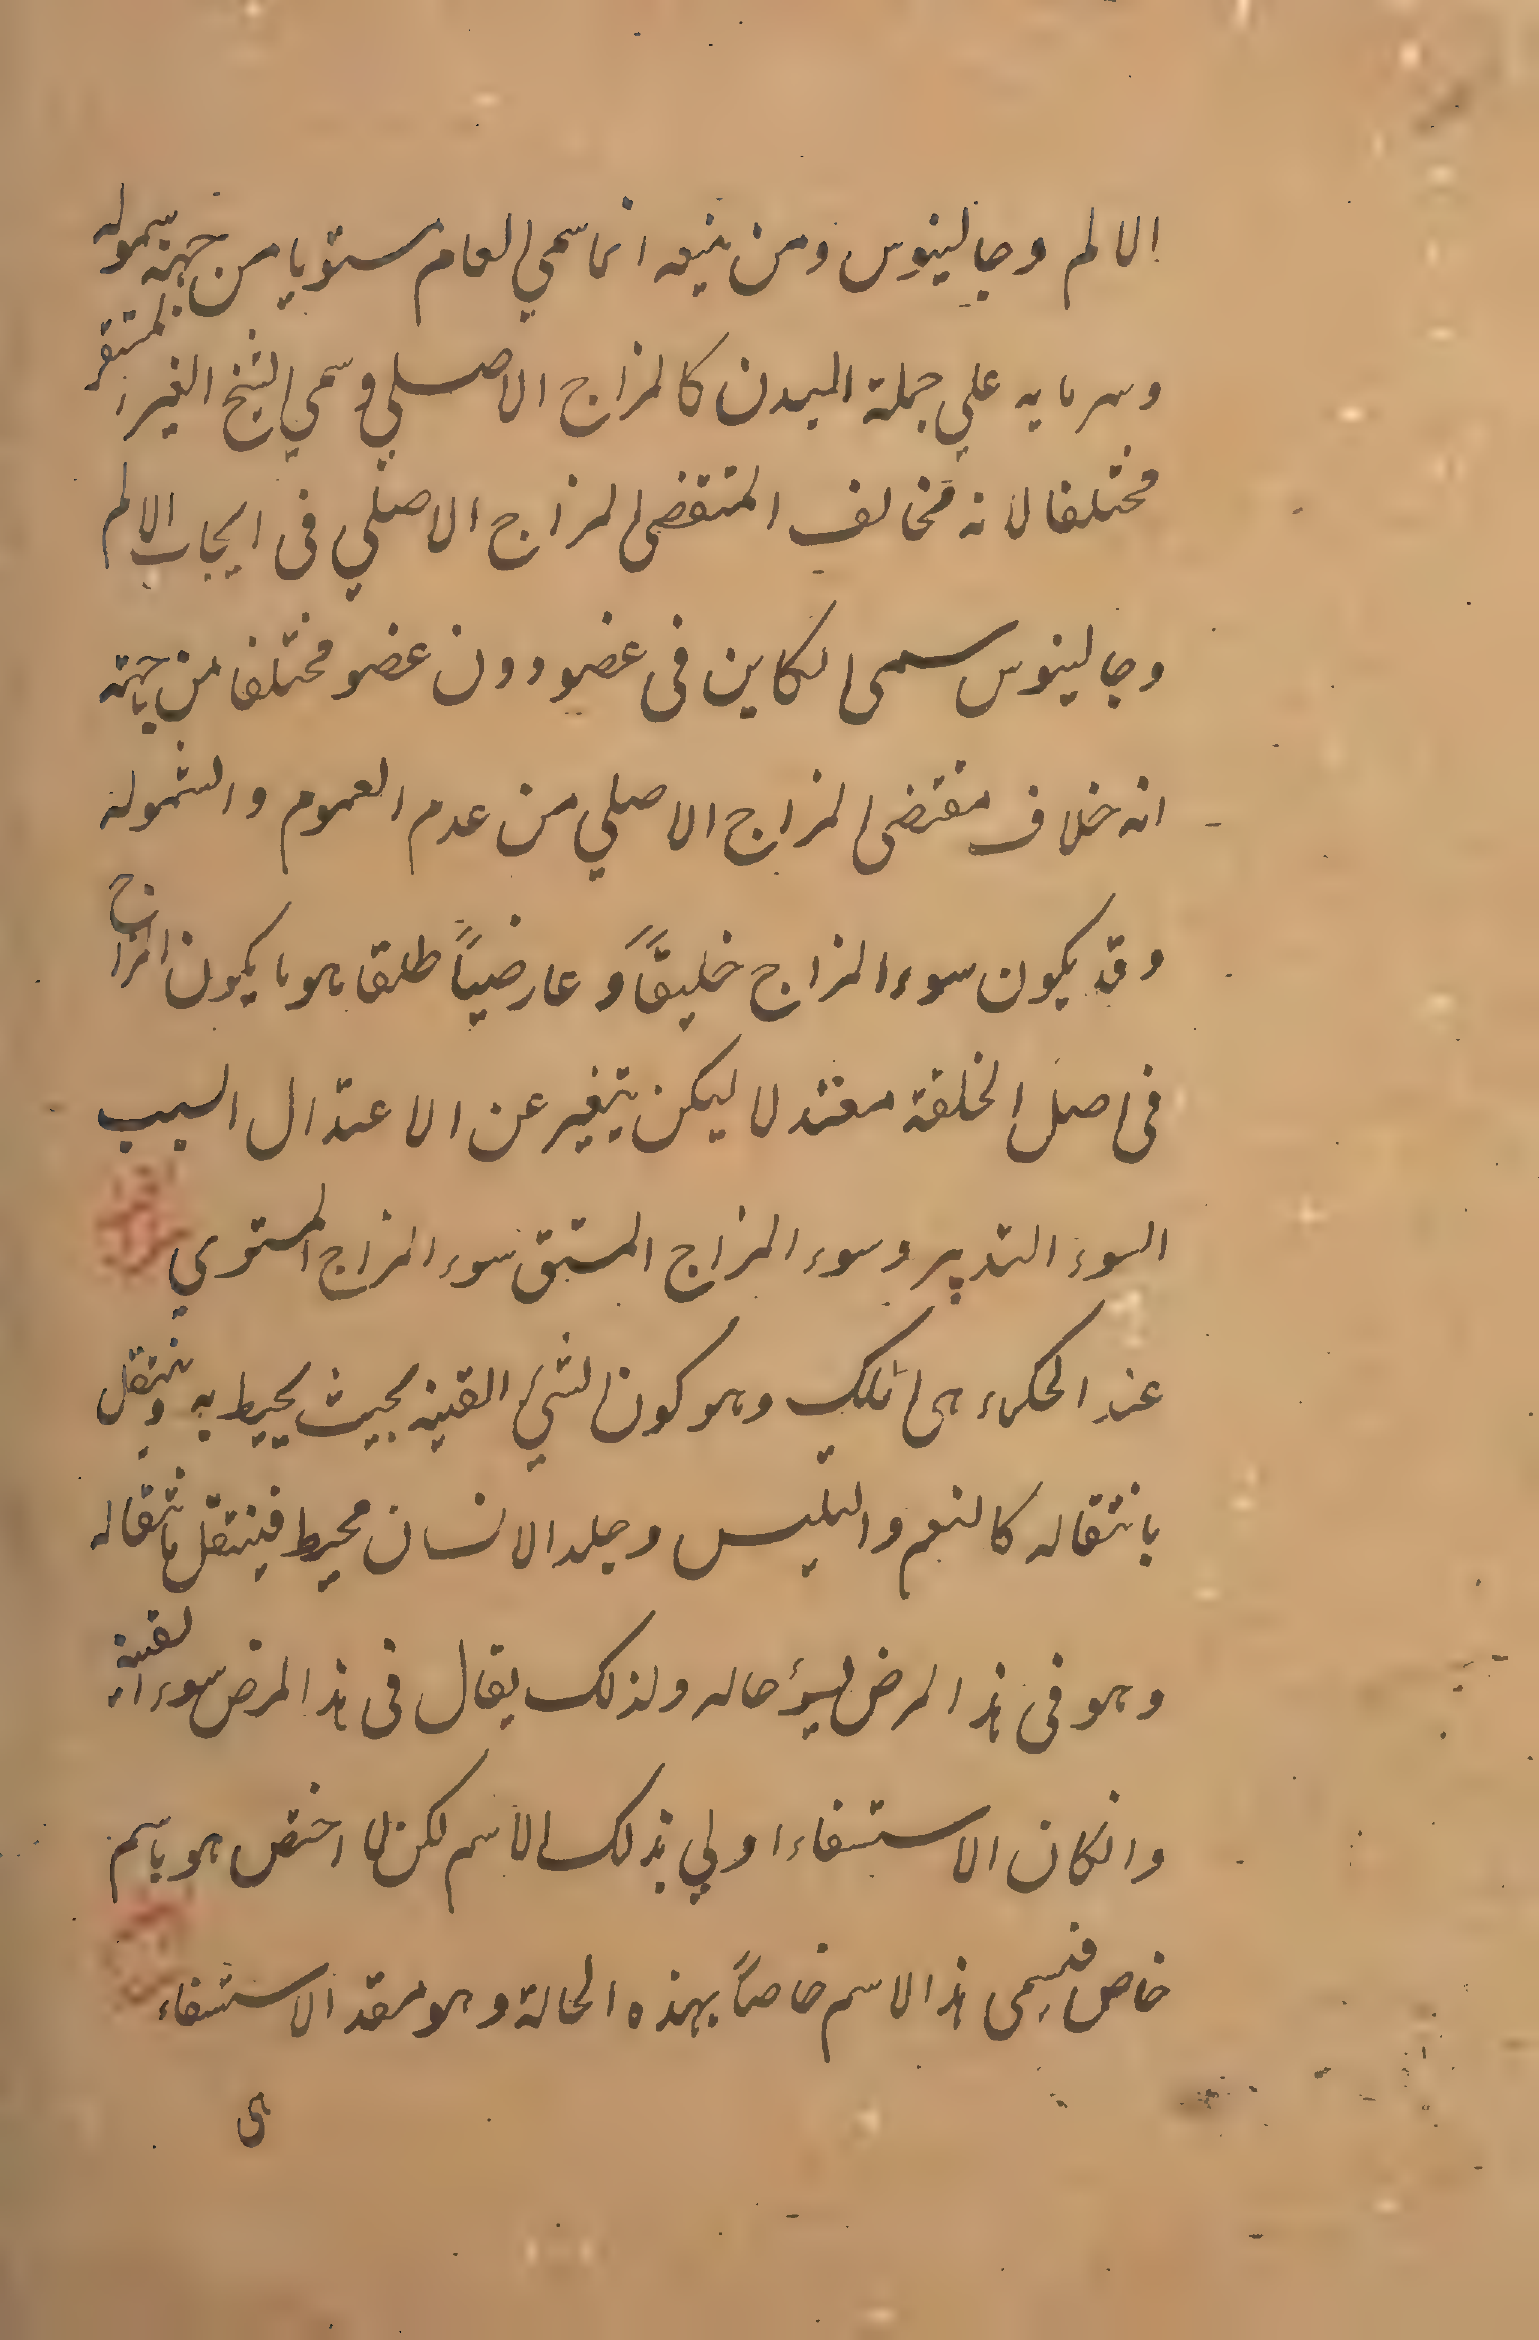 الالم وجالينوس ومن تبعه انما سمي العام مستويا من جهة سموله
وسريايه علي جملة البدن كالمزاج الاصلي وسمي الشيخ الغير المستقر
مختلفا لانه مخالف المتقضى المزاج الاصلي فى ايجاب الالم
وجالينوس سمى الكاين فى عضو دون عضو مختلفا من جهته
انه خلاف مقتضى المزاج الاصلي من عدم العموم والشموله
وقد يكون سوء المزاج خليقًا وعارضياً طلقا هو ما يكون المزاج
فى اصل الخلقة معتدلا ليكن يتغير عن الاعتدال السبب
السوء التدبير وسوء المزاج المستق سوء المزاج المستوي
عند الحكماء هى الملك وهو كون الشيء القينه بحيث يحيط به وينتقل
بانتقاله كالنعم والتلبس وجلد الانسان محيط فينتقل بانتقاله
وهو فى هذا المرض يسؤ حاله ولذلك يقال فى هذا المرض سوء القينه
وانكان الاستسقاء اولي بذلك الاسم لكن لما اختص هو باسم
خاص فسمى هذا الاسم خاصاً بهذه الحالة وهو مقد الاستسقاء
هى